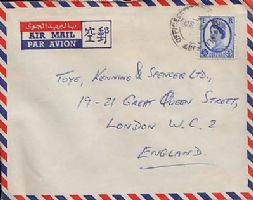 بالبريد الجوي
AIR MAIL
PAR AVION
空郵
TOYE, KENNING & SPENCER LTD.,
19-21 GREAT QUEEN STREET,
LONDON W.C. 2
ENGLAND